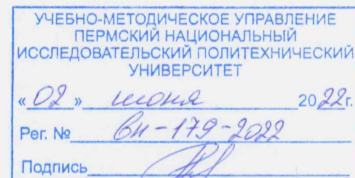 УЧЕБНО-МЕТОДИЧЕСКОЕ УПРАВЛЕНИЕ
ПЕРМСКИЙ НАЦИОНАЛЬНЫЙ
ИССЛЕДОВАТЕЛЬСКИЙ ПОЛИТЕХНИЧЕСКИЙ
УНИВЕРСИТЕТ
«02» июня 2022г.
Рег. № Вн-179-2022
Подпись